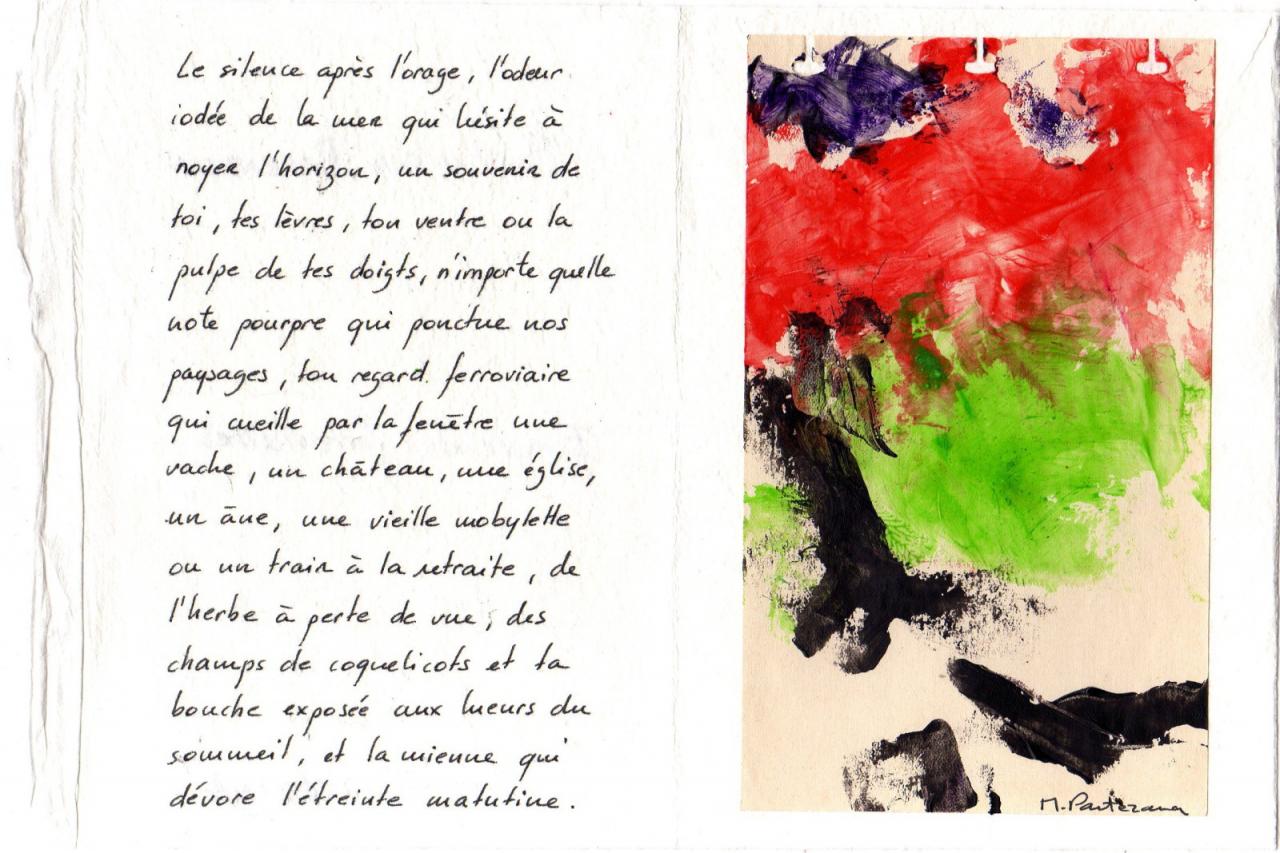 Le silence après l'orage, l'odeur
iodée de la mer qui hésite à
noyer l'horizon, un souvenir de
toi, tes lèvres, ton ventre ou la
pulpe de tes doigts, n'importe quelle
note pourpre qui ponctue nos
paysages, ton regard ferroviaire
qui cueille par la fenêtre une
vache, un château, une église,
un âne, une vieille mobylette
ou un train à la retraite, de
l'herbe à perte de vue, des
champs de coquelicots et ta
bouche exposée aux lueurs du
sommeil, et la mienne qui
dévore l'étreinte matutine.
M.